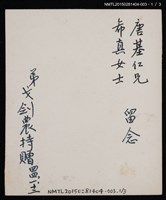 NMTL20150281404-003 - 1 / 3
唐基仁兄
希真女士
留念
弟戈劍農特贈
NMTL20150281404-003.1/3